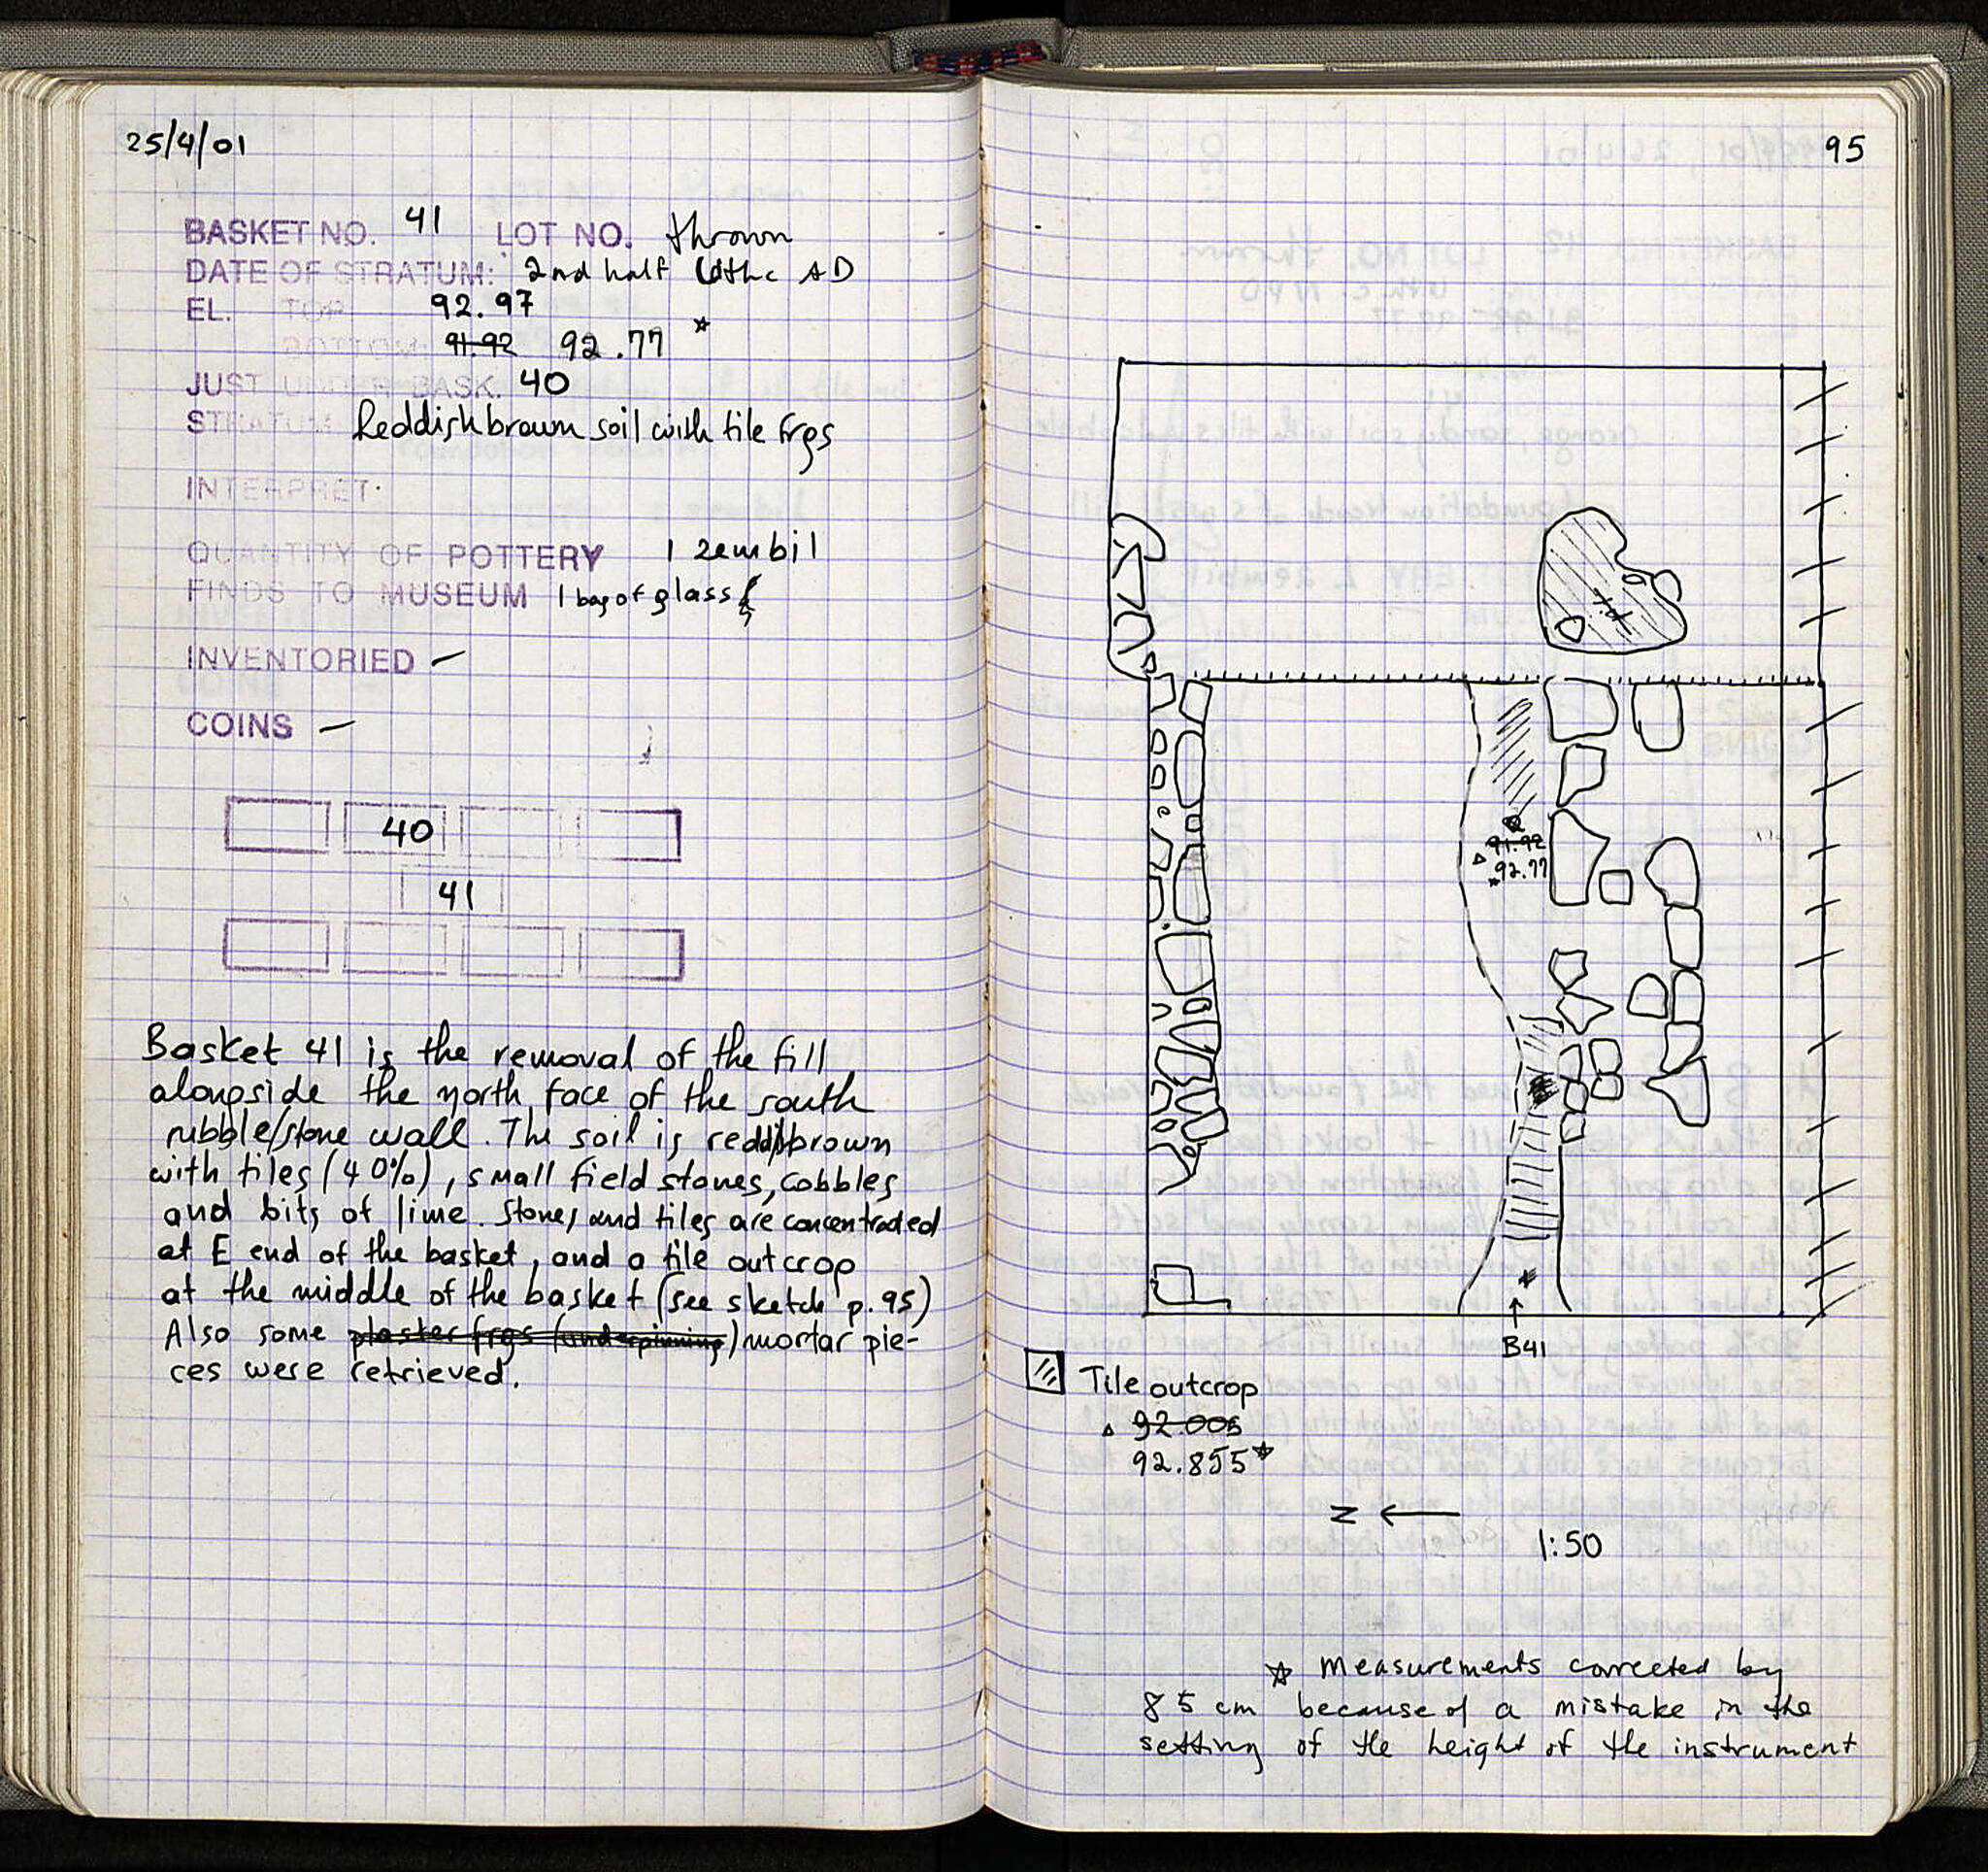 25/4/01
BASKET NO. 41 LOT NO. thrown
DATE OF STRATUM: 2nd half 6thc AD
EL. TOP: 92.97
BOTTOM: 91.92 92.77 *
JUST UNDER BASK. 40
STRATUM: Reddish brown soil with tile frgs
INTERPRET:
QUANTITY OF POTTERY 1 zembil
FINDS TO MUSEUM 1 bag of glass
INVENTORIED –
COINS –
40
41
Basket 41 is the removal of the fill
alongside the north face of the south
rubble/stone wall. The soil is reddishbrown
with tiles (40%), small field stones, cobbles
and bits of lime. Stones and tiles are concentrated
at E end of the basket, and a tile outcrop
at the middle of the basket (see sketch p. 95)
Also some plaster frgs (underpinning) mortar pie-
ces were retrieved.
95
91.92
△ 92.77
*
B41
Tile outcrop
△ 92.005
92.855*
N ←
1:50
* Measurements corrected by
85 cm because of a mistake in the
setting of the height of the instrument